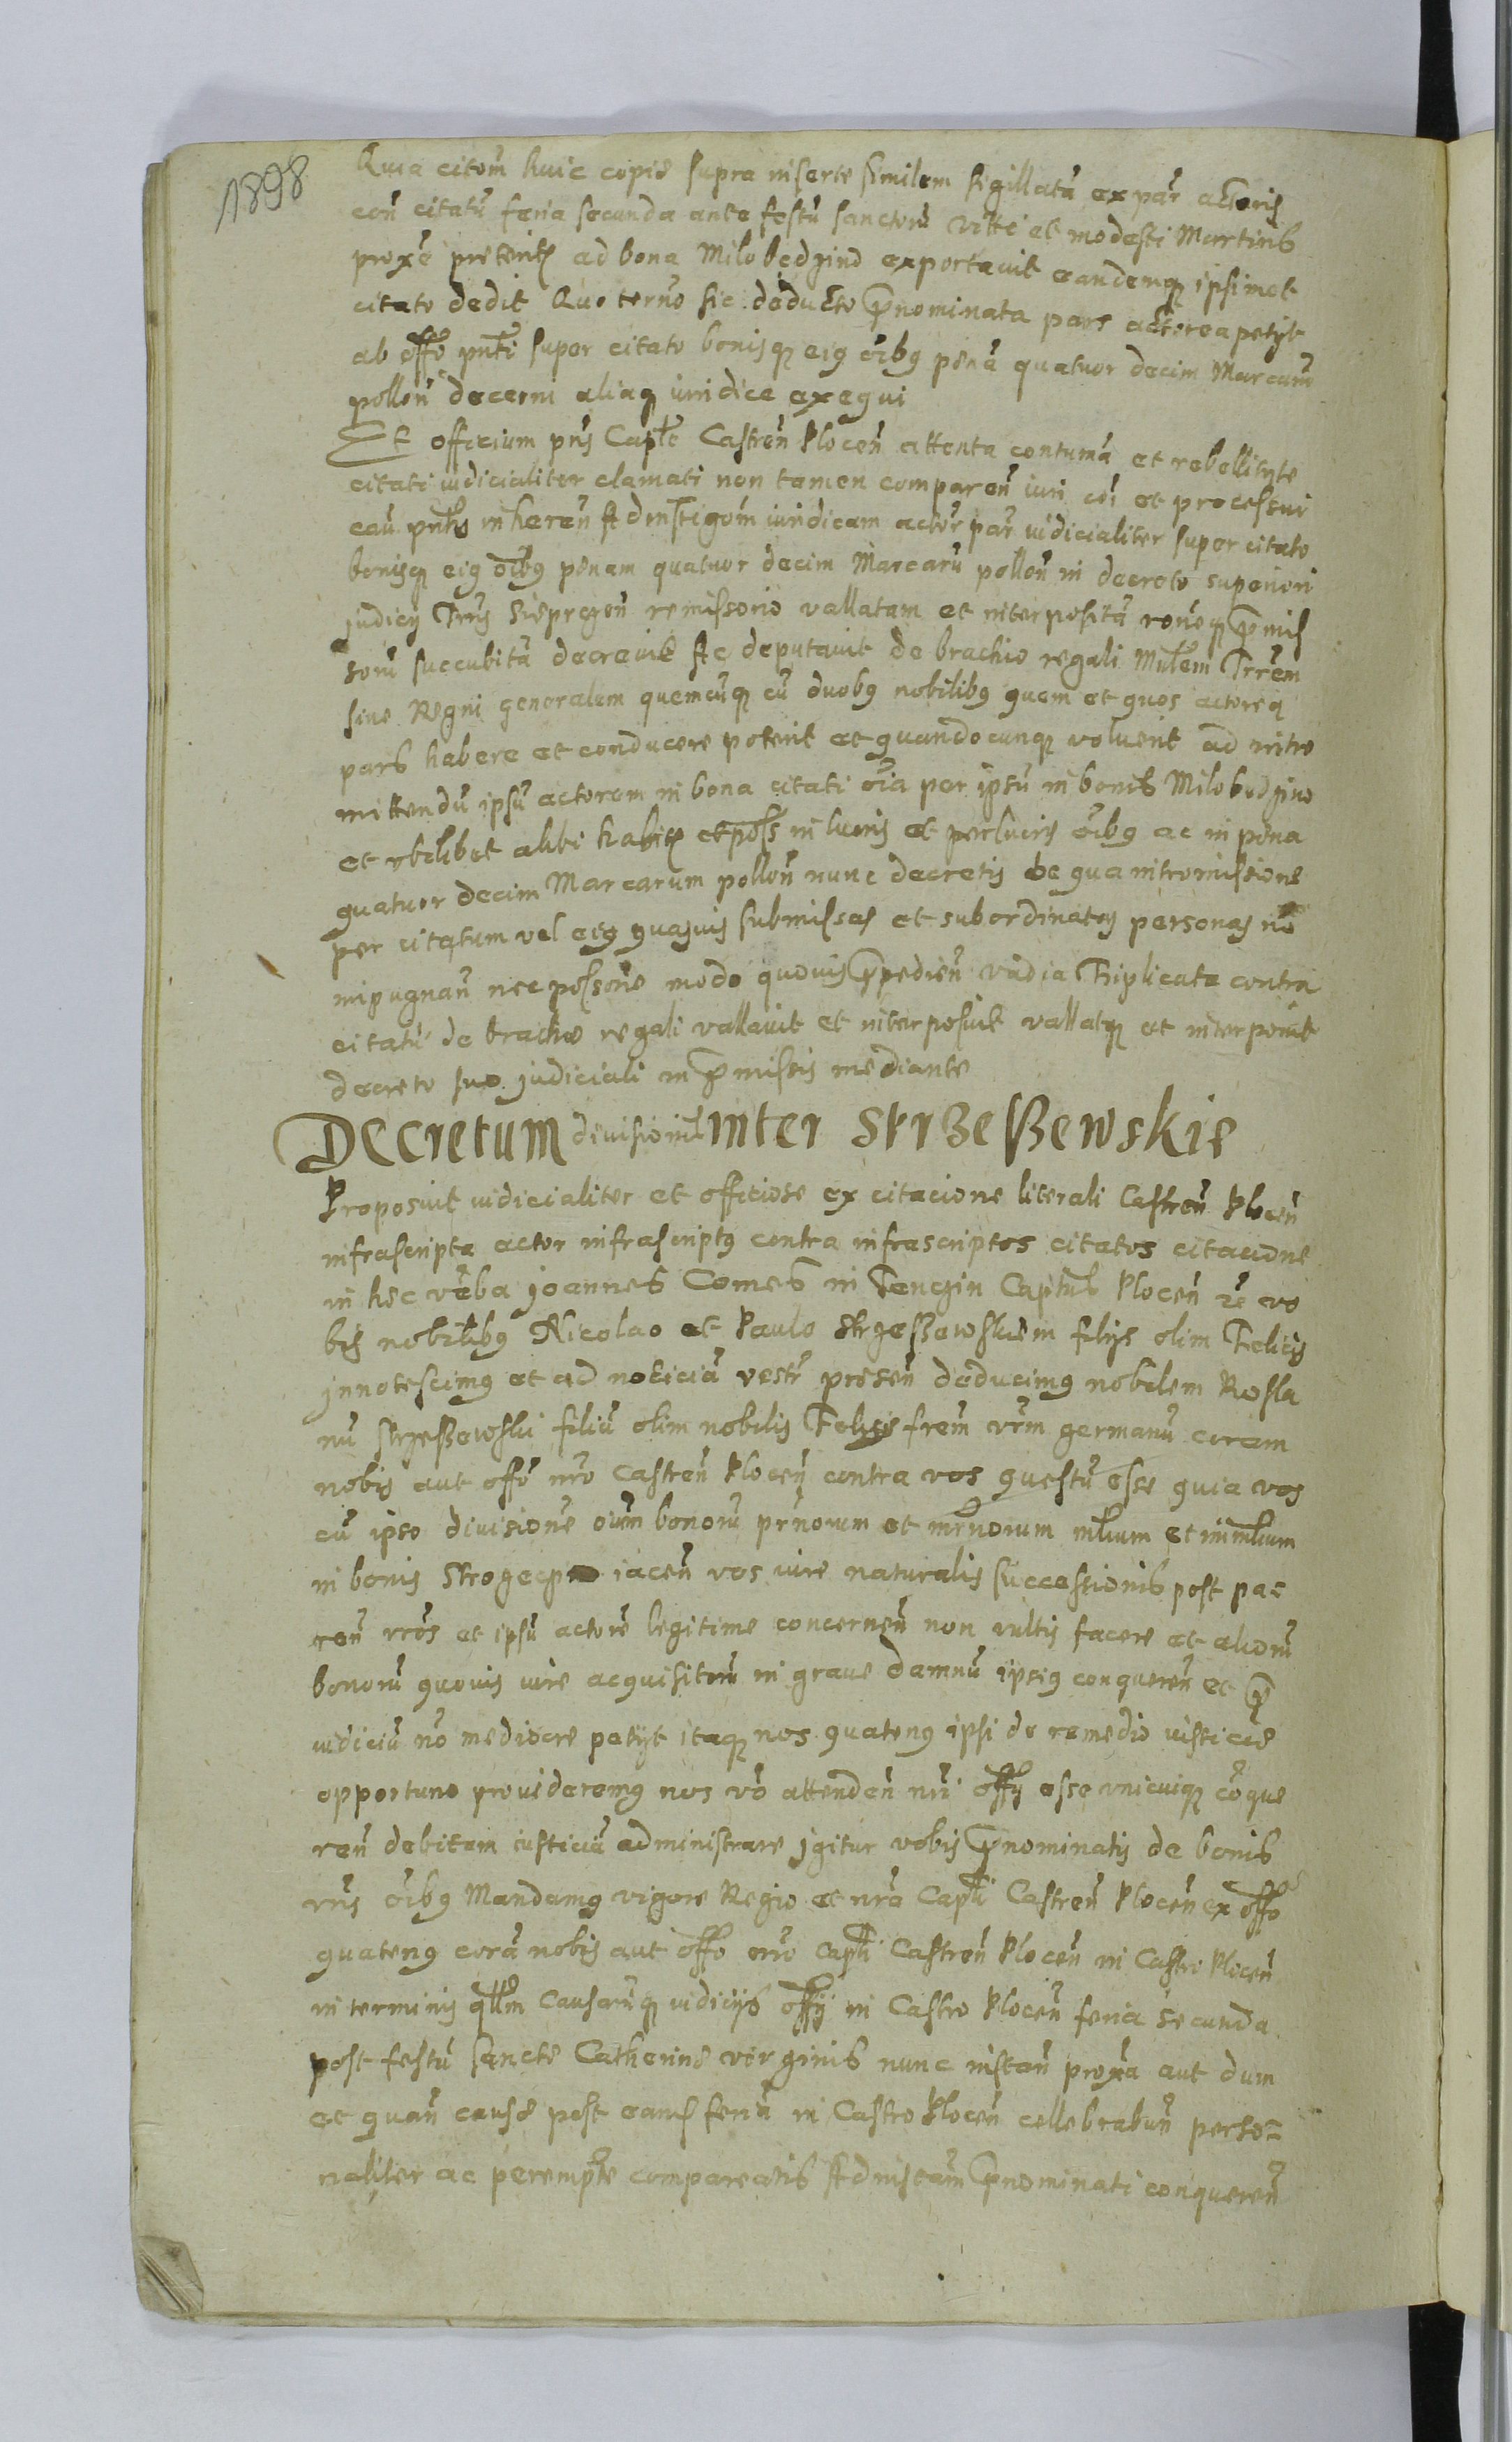 1898
Quia citōm huic copie supra inserte similem sigillatā ex pār actoris
coñ citatū feria secunda ante festū sanctorū Vitti et modesti Martirib
proxē preterit ad bona Milobędzino exportavit eandemq ipsimet
citato dedit Quo terno sic deducto prnominata pars actorea petyt
ab offō pntī super citato bonisq eig oībg penā quatuor decim Marcarū
pollōn decerni aliaq iuridice exequi
Et officium pns Captle Castren̄ Plocen̄ attenta contumā et rebellitate
citati iudicialiter clamati non tamen comparen̄ iuri cōi et processui
cau pntis inheren̄ Ad instigōm iuridicam actōr pār iudicialiter super citato
bonisq eig oībg penam quatuor decim Marcarū pollōn in decreto superiori
judicy Trris Sieprczen̄ remissorio vallatam et interpositā ronēq prmis
sorū succubitā decrevit Ac deputavit de brachio regali Miltem Trrem
sive Regni generalem quemcūq cū duobg nobilibg quem et quos actoreq
pars habere et conducere poterit et quandocunq voluerit ad intro
mittendū ipsū actorem in bona citati oīa per ipsū in bonis Milobędzino
et vbilibet alibi habit et poss in lucris et perlucris oībg ac in pena
quatuor decim Marcarum pollōn nunc decretis de qua intromissione
per citatum vel eig quasuis submissas et subordinatas personas nō
impugnan̄ nec possōne modo quovis prpedien̄ vadia Triplicata contra
citatū de brachio regali vallavit et interposuit vallatq et interponit
decreto suo judiciali in prmissis mediante
Decretum divisionis inter Strzeszewskie
Proposuit iudicialiter et officiose ex citacione literali Castren̄ Plocen̄
infrascripta actor infrascriptg contra infrascriptos citatos citacione
in hec vēba Joannes Comes in Tenczin Captnus Plocen̄ rē vo
bis nobilibg Nicolao et Paulo Strzeszewskiem filijs olim Felicis
Innotescimg et ad noticiā vestr presen̄ deducimg nobilem Rosla
nū Strzeszewski filiū olim nobilis Felicis frem vrm germanū coram
nobis aut offō nrō Castren̄ Plocen̄ contra vos questū esse quia vos
cū ipso divisione oīum bonorū prnorum et mrnorum mlium et immlium
in bonis iacen̄ vos iure naturalis successionis post pa-
ren̄ vrōs et ipsū actorē legitime concernen̄ non vultis facere et aliorū
bonorū quovis iure acquisitorū in grave damnū ipsig conqueren̄ et pr
iudiciū nō mediocre petijt itaq nos quateng ipsi de remedio iusticie
opportuno provideremg nos vō attenden̄ nrī offy esse vnicuiq cōque
ren̄ debitam iusticiā administrare Igitur vobis prnominatis de bonis
vris oībg Mandamg vigore Regio et nrō Captli Castren̄ Plocen̄ ex offō
quateng corā nobis aut offō nrō Captli Castren̄ Plocen̄ in Castro Plocen̄
in terminis qllm Causarūq iudicijs offij in Castro Plocen̄ feria secunda
post festū sancte Catherine virginis nunc instan̄ proxa aut dum
et quan̄ cause post eam feriā in Castro Plocen̄ cellebrabun̄ perso-
naliter ac peremptē compareatis Ad instam prnominati conqueren̄